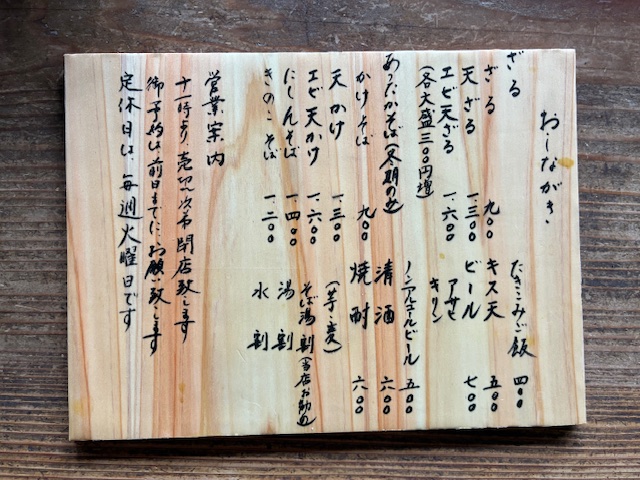 おしながき
ざる
ざる 九〇〇
天ざる 一、三〇〇
エビ天ざる 一、六〇〇
(各大盛三〇〇円増)
あったかそば(冬期のみ)
かけそば 九〇〇
天かけ 一、三〇〇
エビ天かけ 一、六〇〇
にしんそば 一、四〇〇
きのこそば 一、二〇〇
たきこみご飯 四〇〇
キス天 五〇〇
ビール 七〇〇
アサヒ
キリン
ノンアルコールビール 五〇〇
清酒 六〇〇
焼酎 六〇〇
(芋・麦)
そば湯割(当店お勧め)
湯割
水割
営業案内
十一時より、売切れ次第閉店致します
御予約は前日までに、お願い致します
定休日は、毎週火曜日です